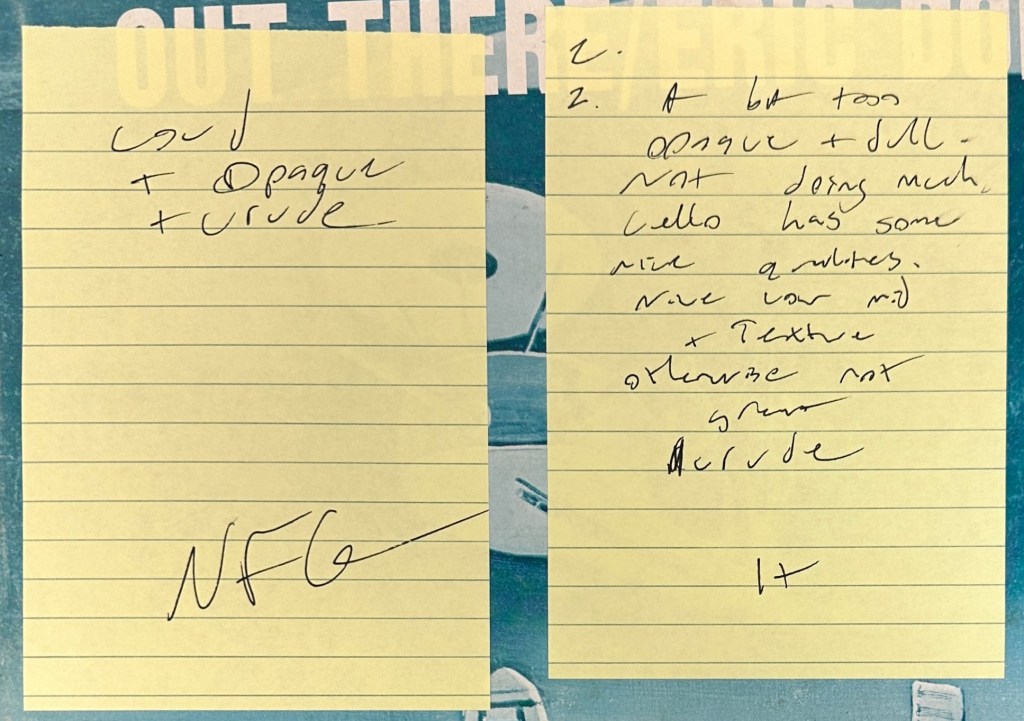 OUT THERE/ERIC DO
Loud
+ Opaque
+ crude
NFG
2.
2. A bit too
opaque + dull.
Not doing much.
Cello has some
nice qualities.
Nice low mid
+ Texture
otherwise not
great
crude
1+